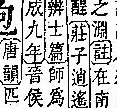 之淵註在南
莊子逍遙
辨士篇師爲
成九年晉侯
唐韻匹